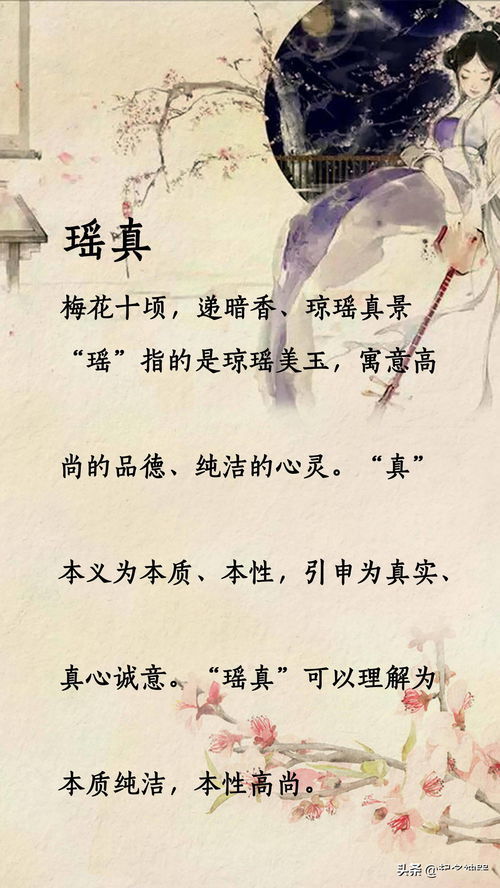 瑶真
梅花十顷，递暗香、琼瑶真景
“瑶”指的是琼瑶美玉，寓意高
尚的品德、纯洁的心灵。“真”
本义为本质、本性，引申为真实、
真心诚意。“瑶真”可以理解为
本质纯洁，本性高尚。
头条 @起名神器